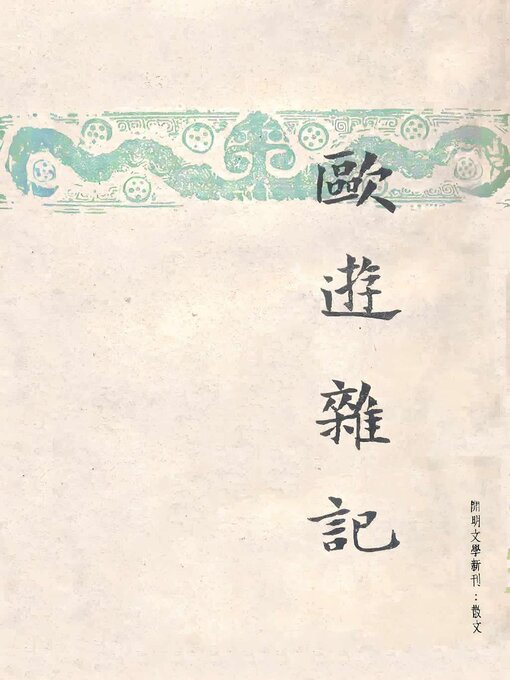 歐遊雜記
開明文學新刊：散文